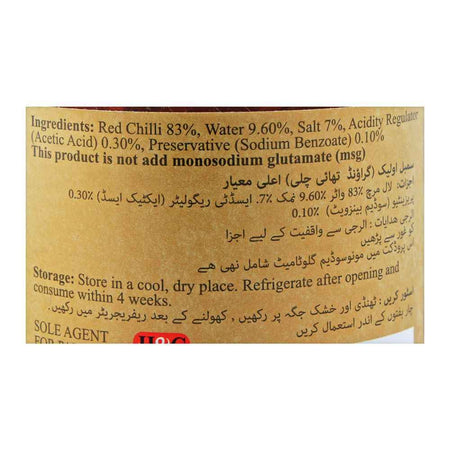 Ingredients: Red Chilli 83%, Water 9.60%, Salt 7%, Acidity Regulator
(Acetic Acid) 0.30%, Preservative (Sodium Benzoate) 0.10%
This product is not add monosodium glutamate (msg)
سمبل اولیک (گراؤنڈ تھائی چلی) اعلی معیار
اجزات: لال مرچ 83% واٹر 9.60% نمک 7%. ایسڈٹی ریگولیٹر (ایکٹیک ایسڈ) 0.30%
پریزینٹیو (سوڈیم بینزویٹ) 0.10%
الرجی هدایات : الرجی سے واقفیت کے لیے اجزا
کو غور سے پڑھیں
اس پروڈکٹ میں مونوسوڈیم گلوٹامیٹ شامل نهی هے
Storage: Store in a cool, dry place. Refrigerate after opening and
consume within 4 weeks.
اسٹور کریں : ٹھنڈی اور خشک جگہ پر رکھیں , کھولنے کے بعد ریفریجریٹر میں رکھیں.
چار ہفتوں کے اندر استعمال کریں
SOLE AGENT
FOR